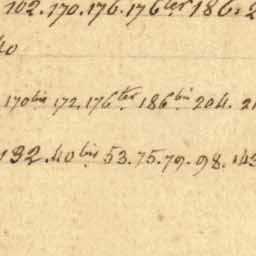 102. 170. 176. 176ter 186. 2
40
170bis 172. 176ter 186bis 204. 21
132. 40bis 53. 75. 79. 98. 143